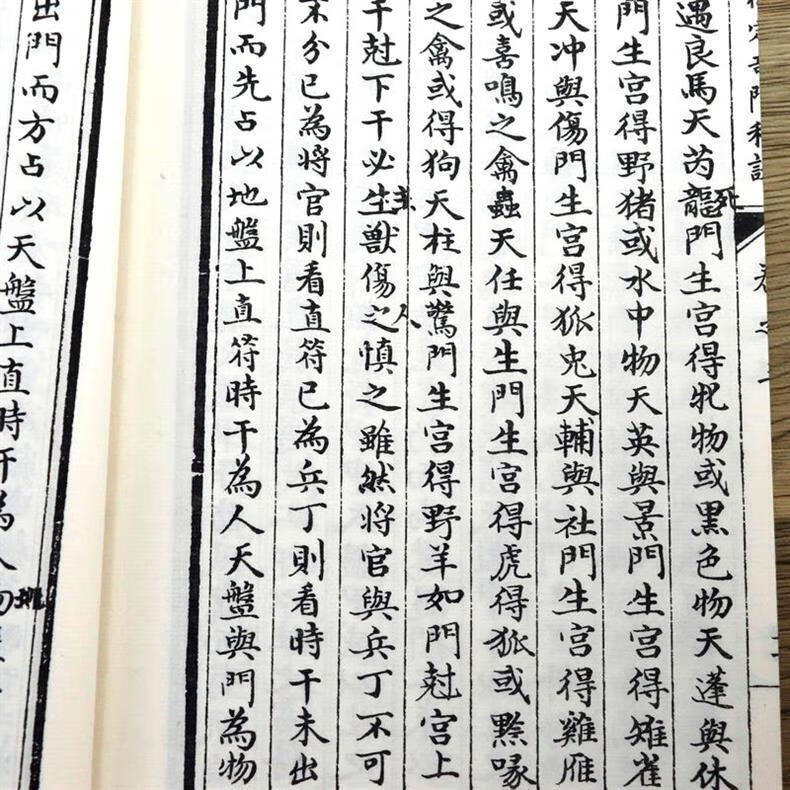 遇良馬天芮龍死門生宮得牝物或黑色物天蓬與休
門生宮得野猪或水中物天英與景門生宮得雉雀
天冲與傷門生宮得狐兎天輔與社門生宮得雞雁
或喜鳴之禽蟲天任與生門生宮得虎得狐或黙喙
之禽或得狗天柱與驚門生宮得野羊如門尅宮上
干尅下干必生主獸傷之人慎之雖然將官與兵丁不可
不分已為將官則看直符已為兵丁則看時干未出
門而先占以地盤上直符時干為人天盤與門為物
出門而方占以天盤上直時干為人